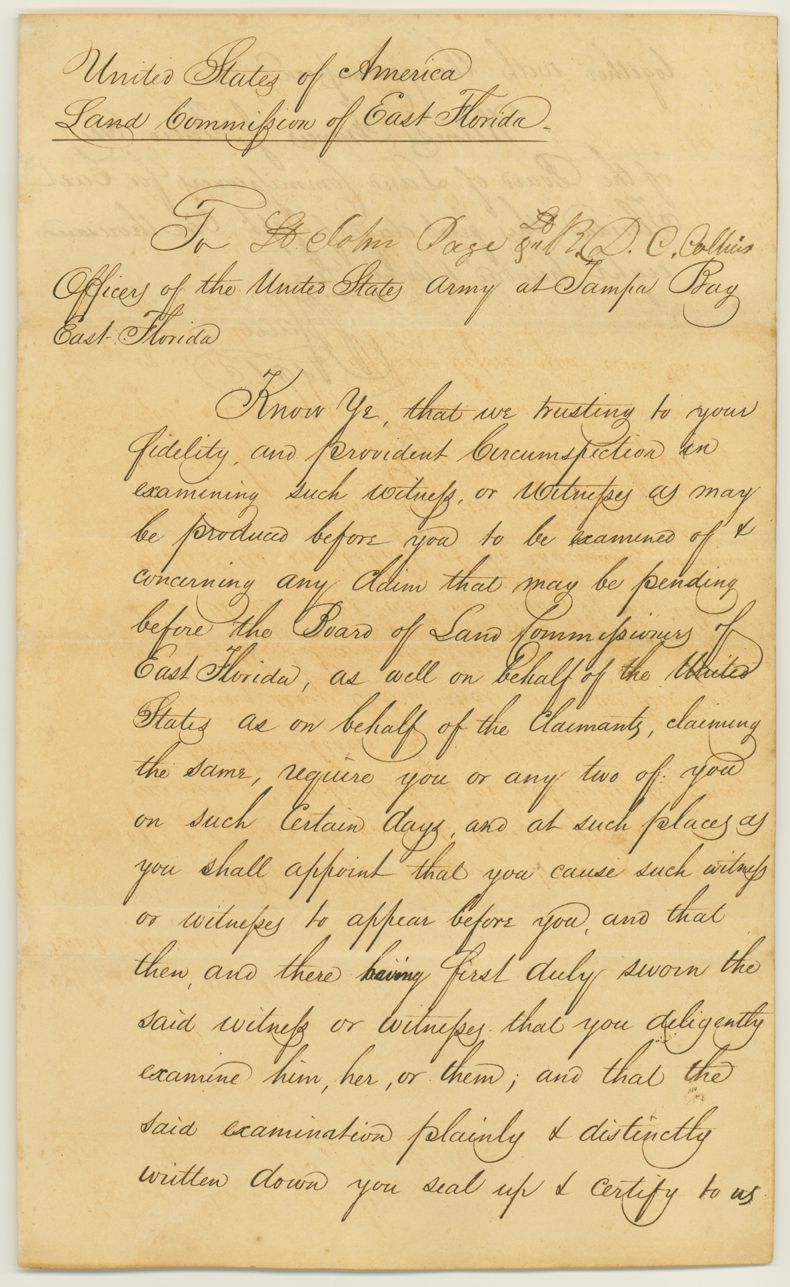 United States of America
Land Commission of East Florida.
To Lt. John Page & Lt R. D. C. Collins
Officers of the United States Army at Tampa Bay
East Florida
Know Ye, that we trusting to your
fidelity, and provident Circumspection in
examining such witness, or Witnesses as may
be produced before you to be examined of &
concerning any Claim that may be pending
before the Board of Land Commissioners of
East Florida, as well on behalf of the United
States as on behalf of the Claimants, claiming
the same, require you or any two of you
on such Certain days, and at such places as
you shall appoint that you cause such witness
or witnesses to appear before you, and that
then, and there having first duly sworn the
said witness or witnesses that you diligently
examine him, her, or them; and that the
said examination plainly & distinctly
written down you seal up & certify to us